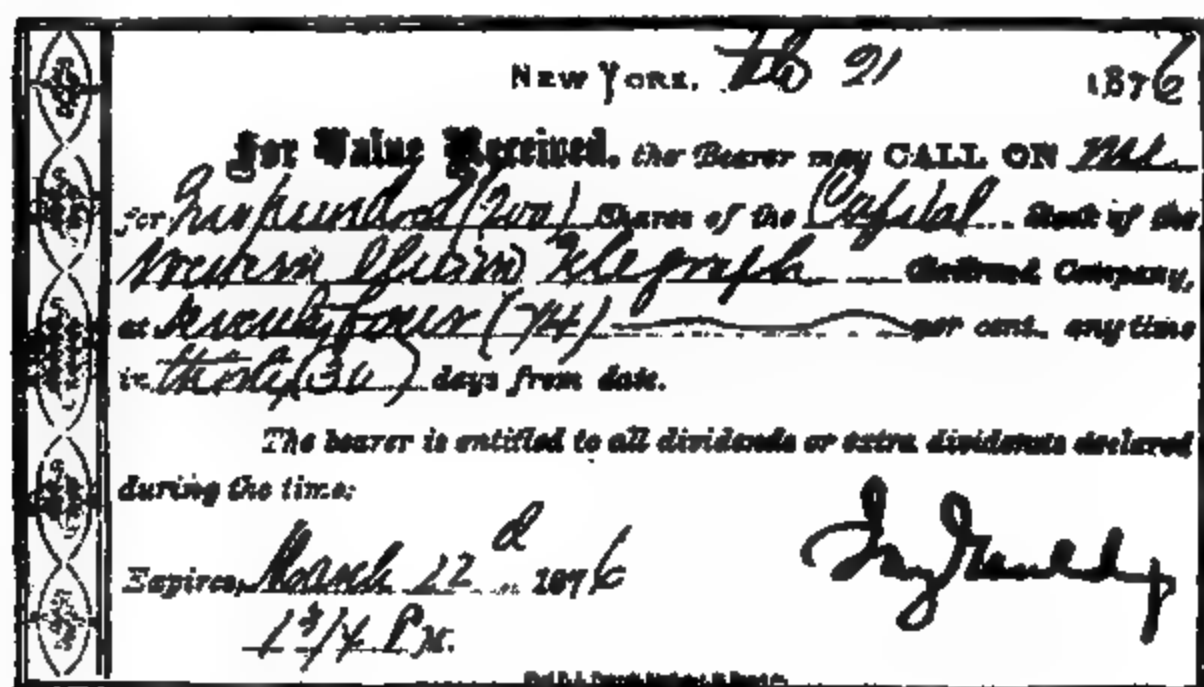 NEW YORK, Feb 21 1876
For Value Received, the Bearer may CALL ON me
for Two hundred (200) Shares of the Capital Stock of the
Western Union Telegraph Railroad Company,
at Seventy four (74) per cent., any time
in thirty (30) days from date.
The bearer is entitled to all dividends or extra dividends declared
during the time:
Expires, March 22d 1876
1 3/4 P.M.
Jay Gould